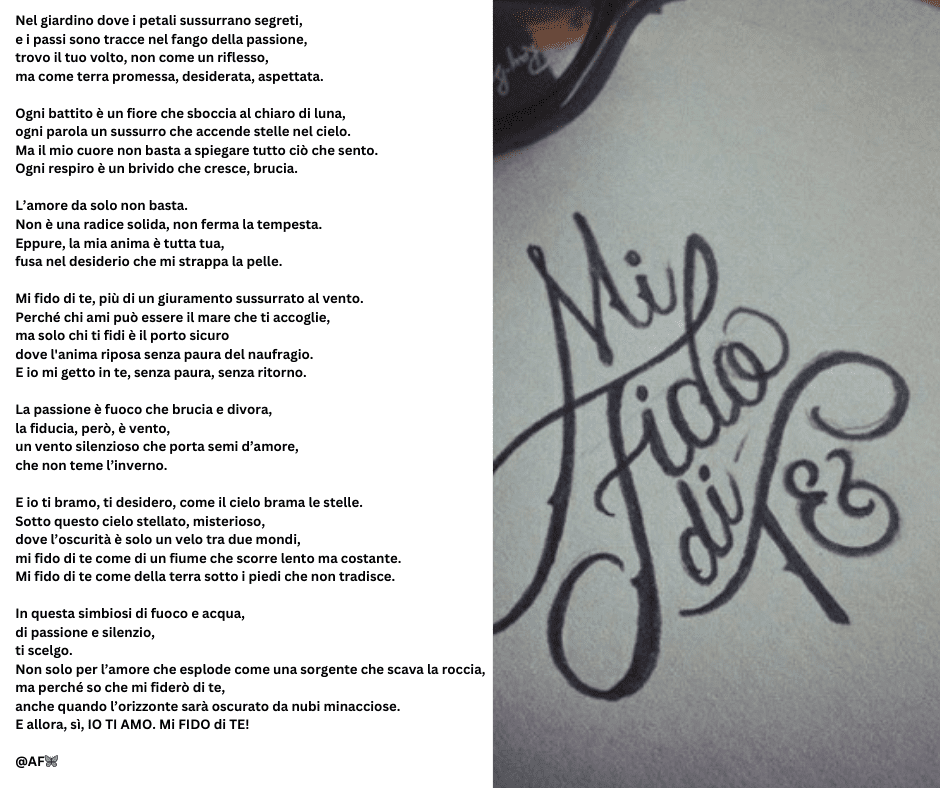 Nel giardino dove i petali sussurrano segreti,
e i passi sono tracce nel fango della passione,
trovo il tuo volto, non come un riflesso,
ma come terra promessa, desiderata, aspettata.

Ogni battito è un fiore che sboccia al chiaro di luna,
ogni parola un sussurro che accende stelle nel cielo.
Ma il mio cuore non basta a spiegare tutto ciò che sento.
Ogni respiro è un brivido che cresce, brucia.

L’amore da solo non basta.
Non è una radice solida, non ferma la tempesta.
Eppure, la mia anima è tutta tua,
fusa nel desiderio che mi strappa la pelle.

Mi fido di te, più di un giuramento sussurrato al vento.
Perché chi ami può essere il mare che ti accoglie,
ma solo chi ti fidi è il porto sicuro
dove l'anima riposa senza paura del naufragio.
E io mi getto in te, senza paura, senza ritorno.

La passione è fuoco che brucia e divora,
la fiducia, però, è vento,
un vento silenzioso che porta semi d’amore,
che non teme l’inverno.

E io ti bramo, ti desidero, come il cielo brama le stelle.
Sotto questo cielo stellato, misterioso,
dove l’oscurità è solo un velo tra due mondi,
mi fido di te come di un fiume che scorre lento ma costante.
Mi fido di te come della terra sotto i piedi che non tradisce.

In questa simbiosi di fuoco e acqua,
di passione e silenzio,
ti scelgo.
Non solo per l’amore che esplode come una sorgente che scava la roccia,
ma perché so che mi fiderò di te,
anche quando l’orizzonte sarà oscurato da nubi minacciose.
E allora, sì, IO TI AMO. Mi FIDO di TE!

@AF🦋

Mi
Fido
di
Te